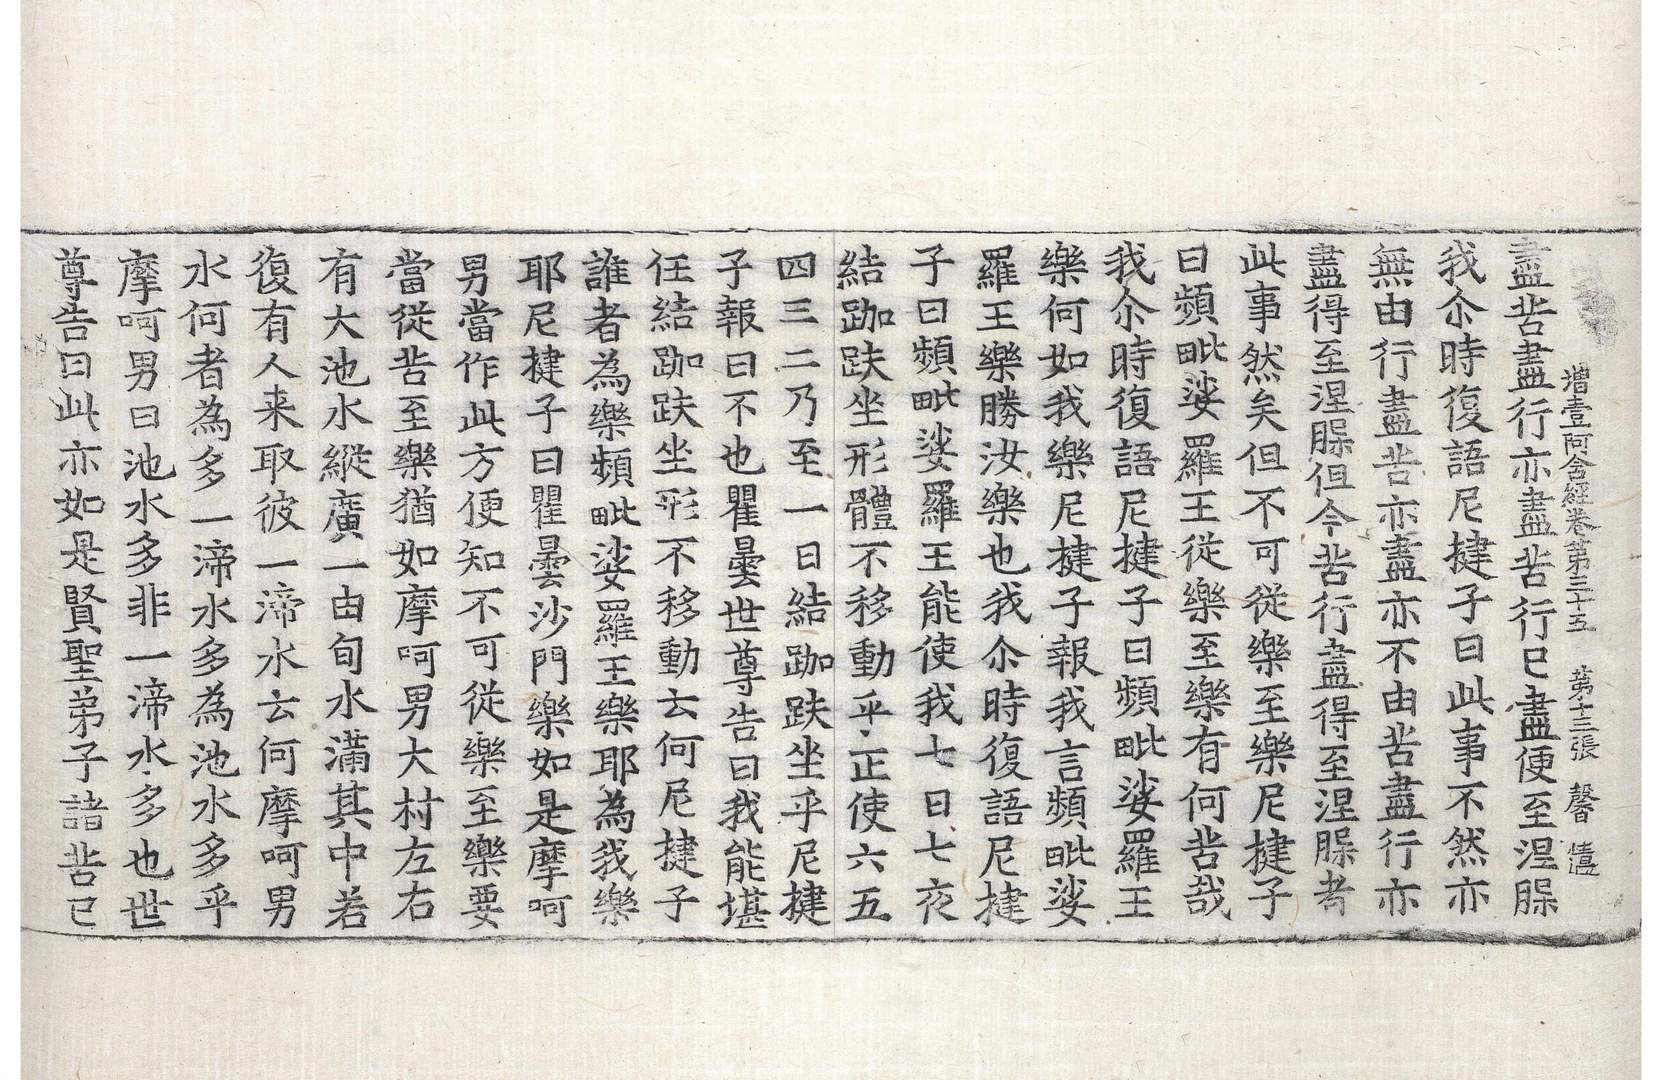 增壹阿含經卷第三十五 第十三張 馨
盡苦盡行亦盡苦行已盡便至涅槃
我尒時復語尼揵子曰此事不然亦
無由行盡苦亦盡亦不由苦盡行亦
盡得至涅槃但今苦行盡得至涅槃者
此事然矣但不可從樂至樂尼揵子
曰頻毗娑羅王從樂至樂有何苦哉
我尒時復語尼揵子曰頻毗娑羅王
樂何如我樂尼揵子報我言頻毗娑
羅王樂勝汝樂也我尒時復語尼揵
子曰頻毗娑羅王能使我七日七夜
結跏趺坐形體不移動乎正使六五
四三二乃至一日結跏趺坐乎尼揵
子報曰不也瞿曇世尊告曰我能堪
任結跏趺坐形不移動云何尼揵子
誰者為樂頻毗娑羅王樂耶為我樂
耶尼揵子曰瞿曇沙門樂如是摩呵
男當作此方便知不可從樂至樂要
當從苦至樂猶如摩呵男大村左右
有大池水縱廣一由旬水滿其中若
復有人来取彼一渧水云何摩呵男
水何者為多一渧水多為池水多乎
摩呵男曰池水多非一渧水多也世
尊告曰此亦如是賢聖弟子諸苦已